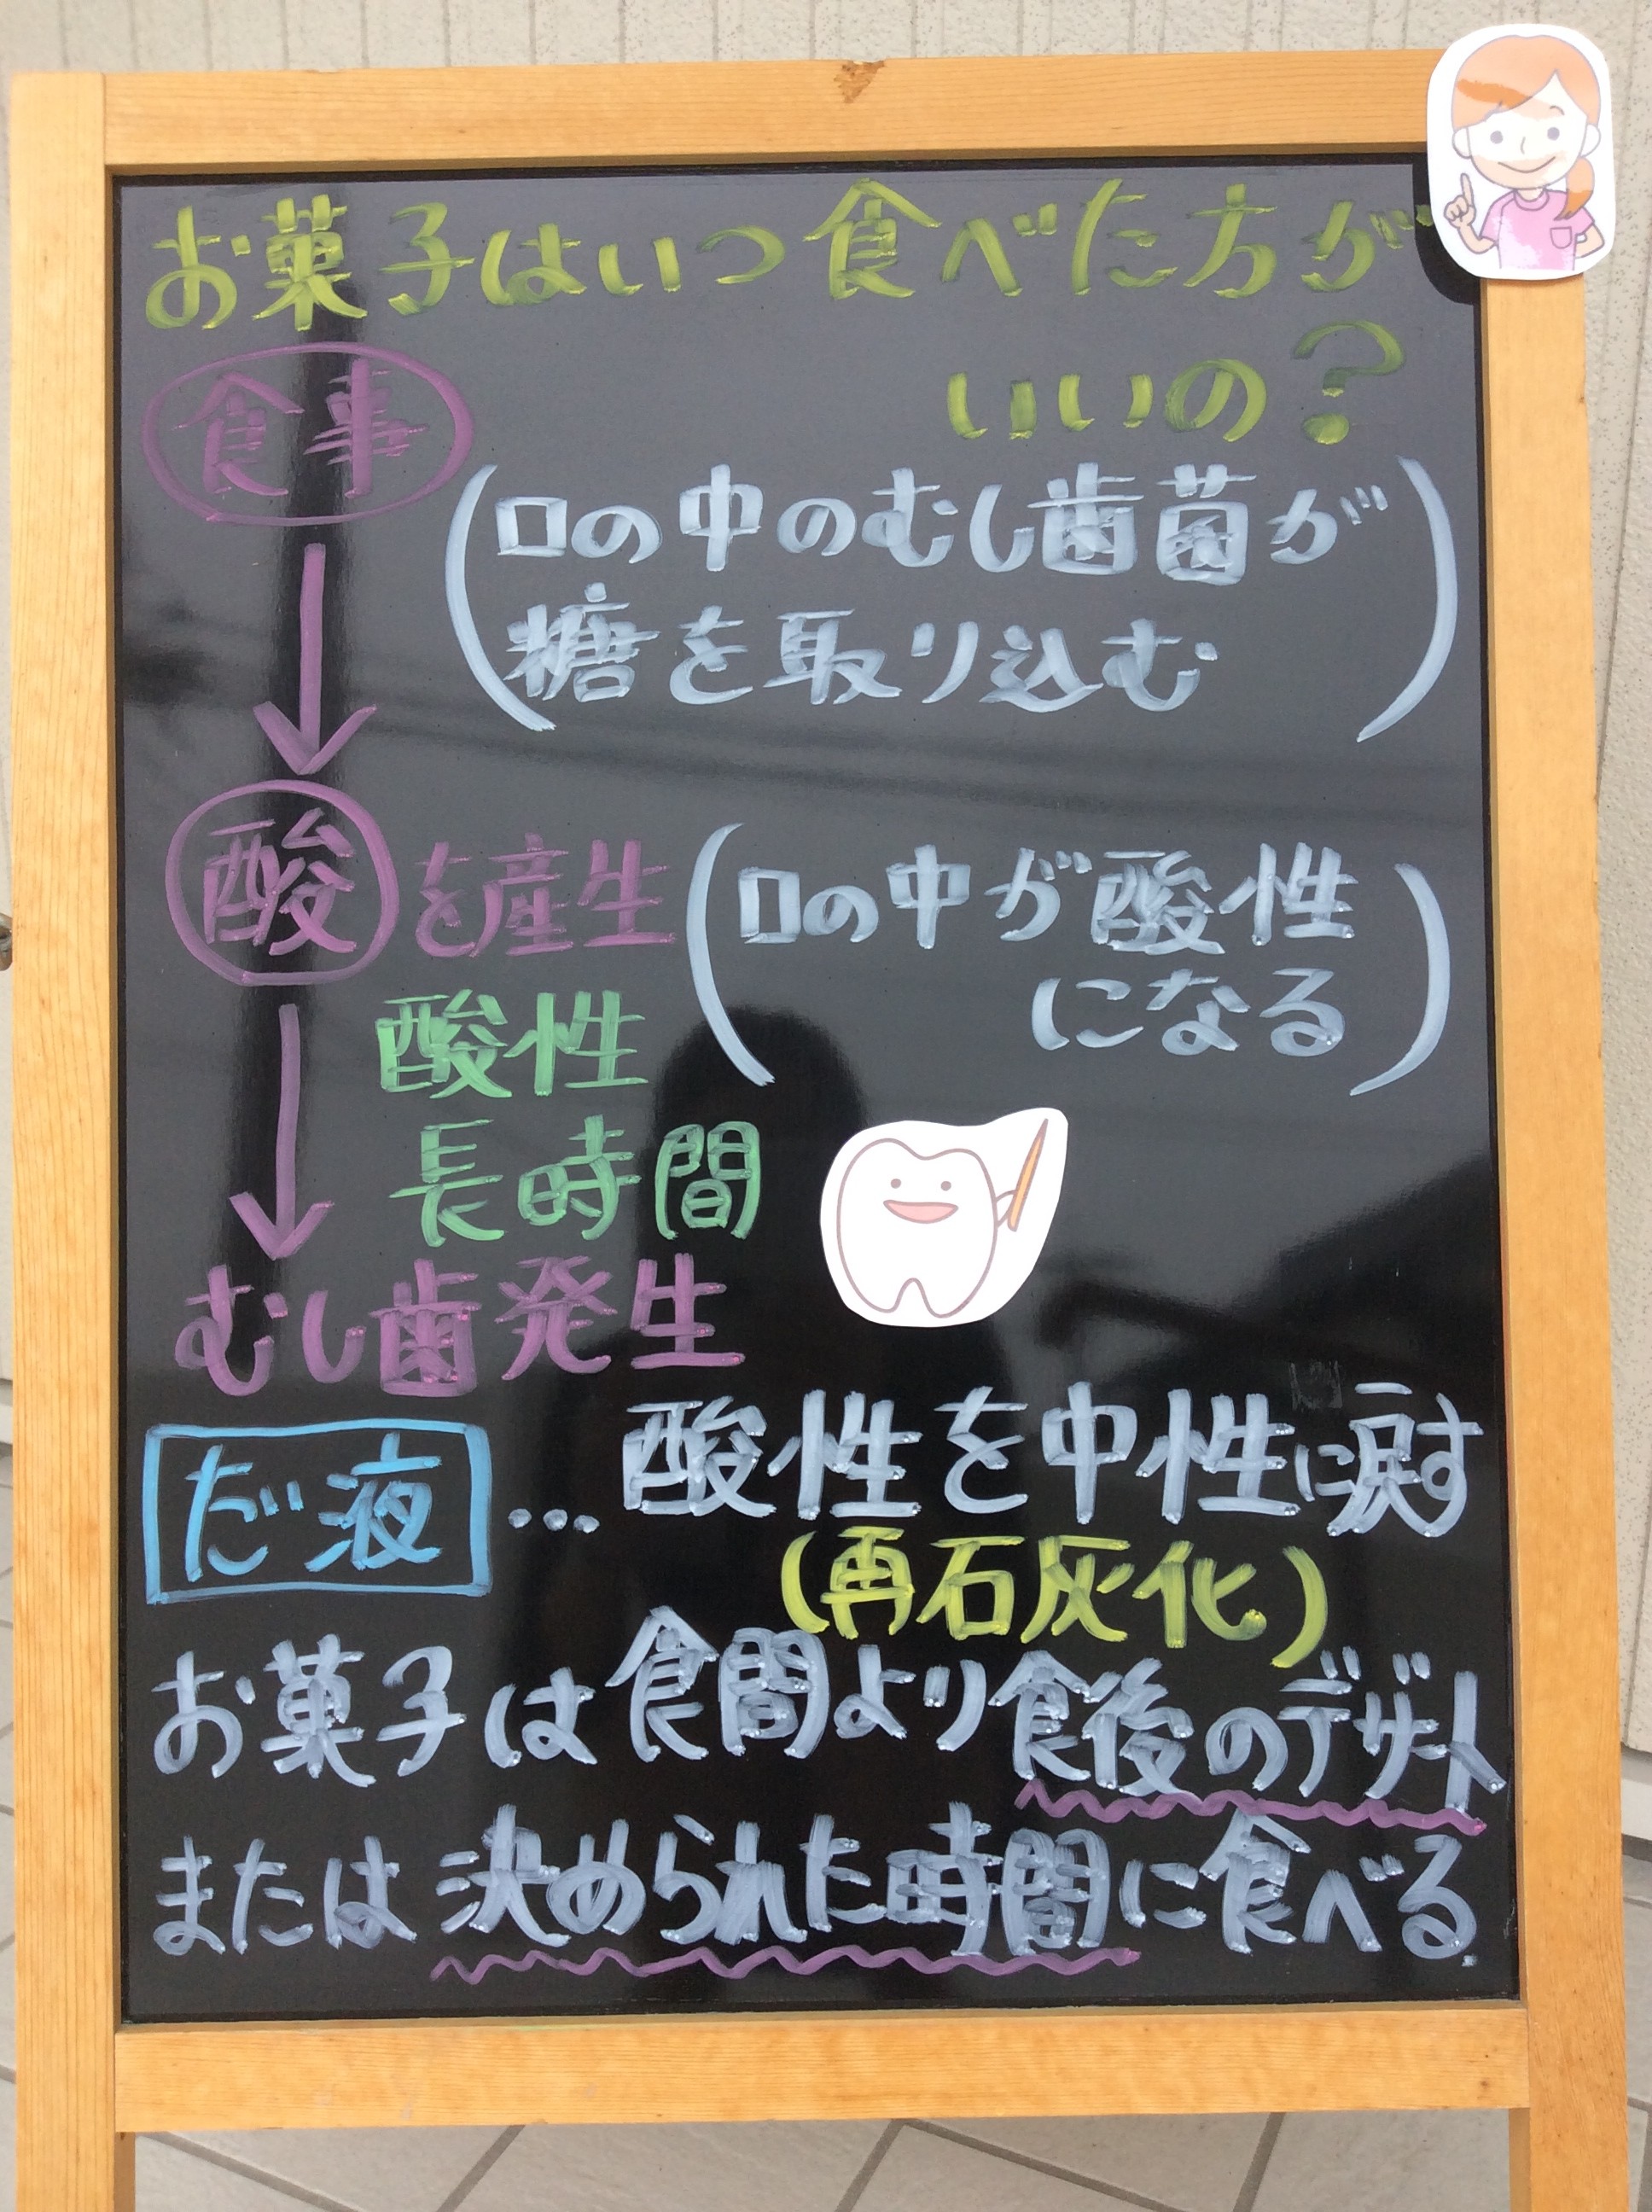 お菓子はいつ食べた方が
いいの?
食事
(口の中のむし歯菌が
糖を取り込む)
酸を産生(口の中が酸性
になる)
酸性
長時間
むし歯発生
だ液…酸性を中性に戻す
(再石灰化)
お菓子は食間より食後のデザート
または決められた時間に食べる.